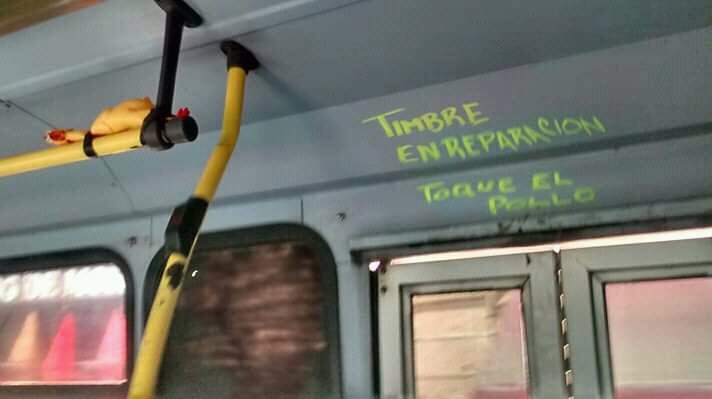 TIMBRE
EN REPARACION
TOQUE EL
POLLO